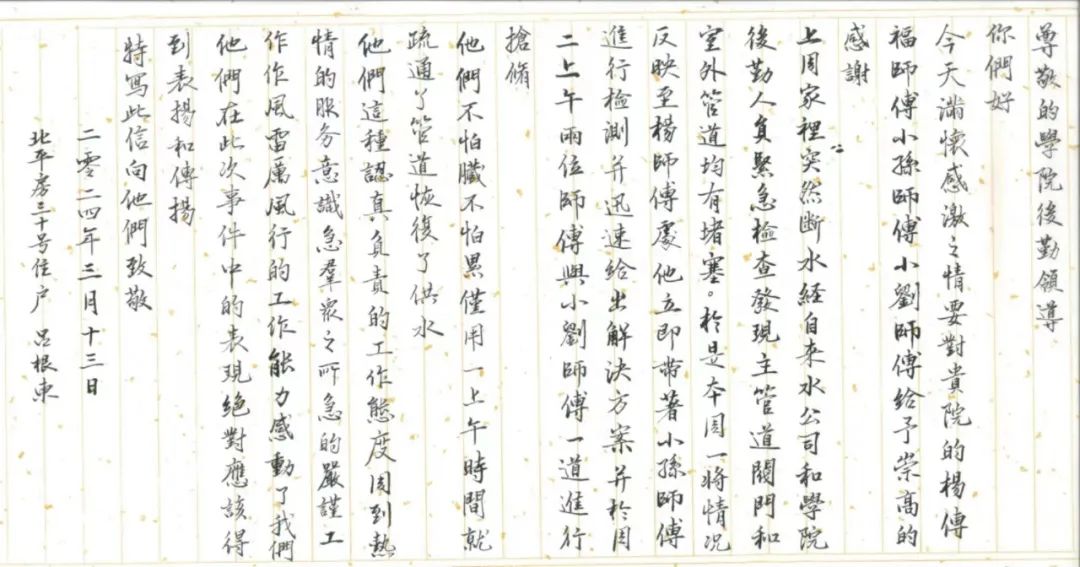 尊敬的學院後勤領導
你們好
今天滿懷感激之情要對貴院的楊傳
福師傅小孫師傅小劉師傅給予崇高的
感謝
上周家裡突然断水經自来水公司和學院
後勤人負緊急檢查發現主管道閥門和
室外管道均有堵塞。於是本周一將情况
反映至楊師傅處他立即帶著小孫師傅
進行檢測并迅速給出解決方案并於周
二上午兩位師傅與小劉師傅一道進行
搶脩
他們不怕臟不怕累僅用一上午時間就
疏通了管道恢復了供水
他們這種認真負責的工作態度周到熱
情的服务意識急羣眾之所急的嚴謹工
作作風雷厲風行的工作能力感動了我們
他們在此次事件中的表現絕對應該得
到表揚和傳揚
特寫此信向他們致敬
二零二四年三月十三日
北平房三十号住户 吕根東